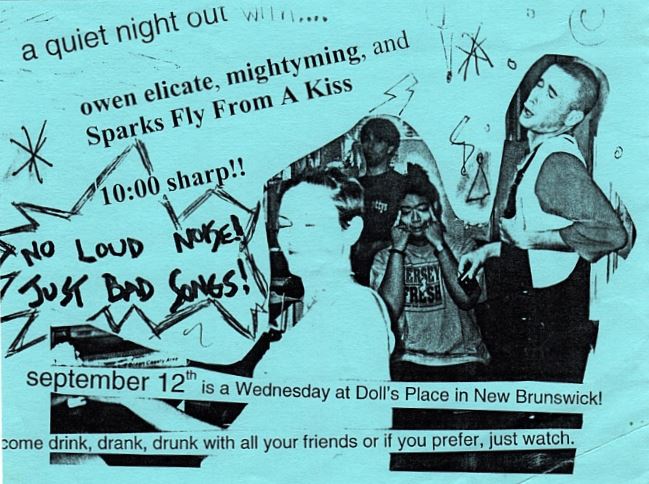 a quiet night out with....
owen elicate, mightyming, and
Sparks Fly From A Kiss
10:00 sharp!!
NO LOUD NOISE!
JUST BAD SONGS!
ERSEY
FRESH
september 12th is a Wednesday at Doll's Place in New Brunswick!
come drink, drank, drunk with all your friends or if you prefer, just watch.